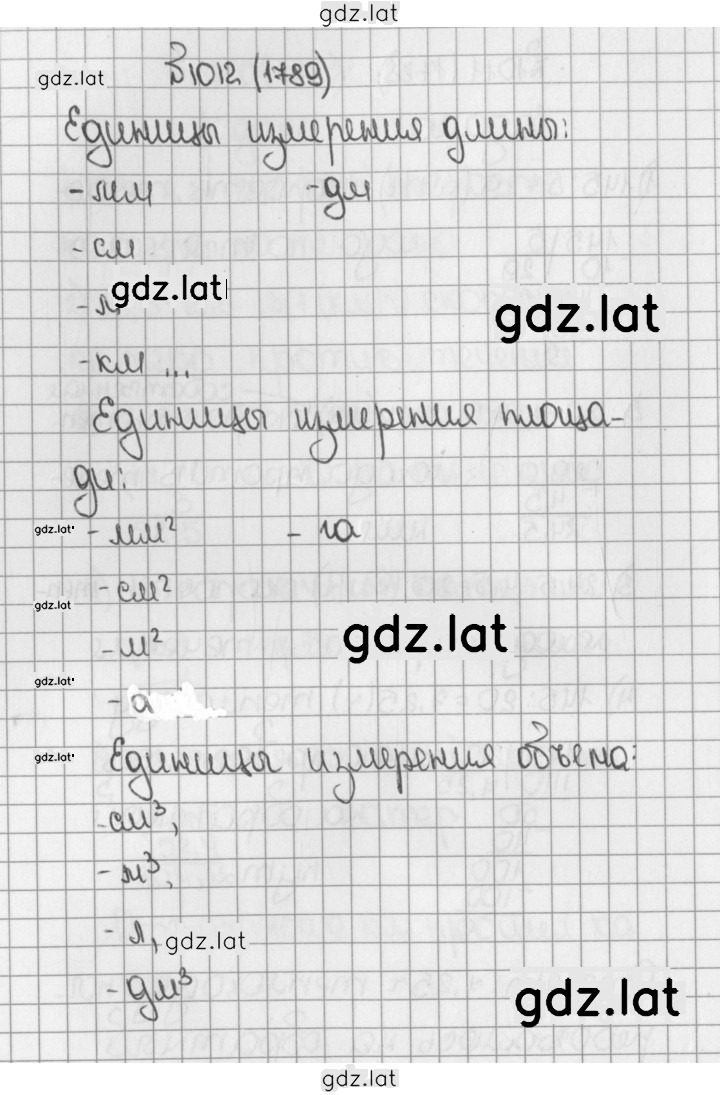 gdz.lat
gdz.lat
В1012 (1789)
Единицы измерения длины:
- мм - дм
- см
gdz.lat
- м
gdz.lat
- км ...
Единицы измерения площа-
ди:
gdz.lat
- мм² - га
- см²
gdz.lat
- м²
gdz.lat
gdz.lat
- а
Единицы измерения объема:
gdz.lat
- см³,
- м³,
- л,
gdz.lat
- дм³
gdz.lat
gdz.lat